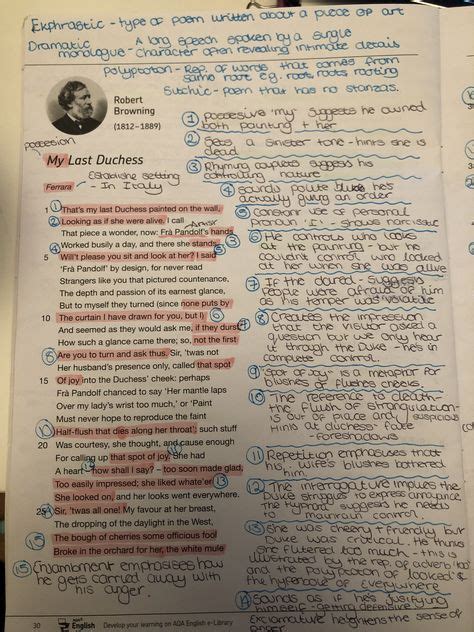 Ekphrastic - type of poem written about a piece of art
Dramatic monologue - A long speech spoken by a single
character often revealing intimate details
Polyptoton - Rep. of words that comes from
same root e.g. root, roots, rooting
Stichic - poem that has no stanzas.
Robert
Browning
(1812–1889)
possesion
My Last Duchess
Ferrara
Establishe setting
- In Italy
1 That's my last Duchess painted on the wall,
Looking as if she were alive. I call
That piece a wonder, now: Frà Pandolf's hands
Worked busily a day, and there she stands.
5 Will't please you sit and look at her? I said
'Frà Pandolf' by design, for never read
Strangers like you that pictured countenance,
The depth and passion of its earnest glance,
But to myself they turned (since none puts by
10 The curtain I have drawn for you, but I)
And seemed as they would ask me, if they durst,
How such a glance came there; so, not the first
Are you to turn and ask thus. Sir, 'twas not
Her husband's presence only, called that spot
15 Of joy into the Duchess' cheek: perhaps
Frà Pandolf chanced to say 'Her mantle laps
Over my lady's wrist too much,' or 'Paint
Must never hope to reproduce the faint
Half-flush that dies along her throat'; such stuff
20 Was courtesy, she thought, and cause enough
For calling up that spot of joy. She had
A heart – how shall I say? – too soon made glad,
Too easily impressed; she liked whate'er
She looked on, and her looks went everywhere.
25 Sir, 'twas all one! My favour at her breast,
The dropping of the daylight in the West,
The bough of cherries some officious fool
Broke in the orchard for her, the white mule
1 possesive 'my' suggests he owned
both painting + her
2 Sets a sinister tone - hints she is
dead
3 Rhyming couplets suggest his
controlling nature
4 Sounds polite but he's
actually giving an order
5 Constant use of personal
pronoun 'I' - shows narcissistic
6 He controls who looks
at the painting - but he
couldn't control who looked
at her when she was alive
7 If the dared - suggests
people were afraid of him
as his temper was volatile
8 Creates the impression
that the visitor asked a
question but we only hear
it through the Duke - he's in
complete control.
9 'Spot of joy' is a metaphor for
blushes or flushes cheeks.
10 The reference to death -
the flush of strangulation -
is out of place and suspicious
Hints at duchess' fate -
foreshadows
11 Repetition emphasises that
his wife's blushes bothered
him.
12 The interrogative implies the
Duke struggles to express annoyance.
suggests he needs
to maintain control.
13 She was cheery + friendly but
Duke was critical. He thinks
She flirted too much - this is
illustrated by the rep. of adverb 'too'
and the polyptoton of 'looked' &
the hyperbole of 'everywhere'
14 Sounds as if he's justifying
himself - getting defensive
Exclamative heightens the sense of
anger
15 Enjambment emphasises how
he gets carried away with
his anger.
30
AQA
English
Develop your learning on AQA English e-Library